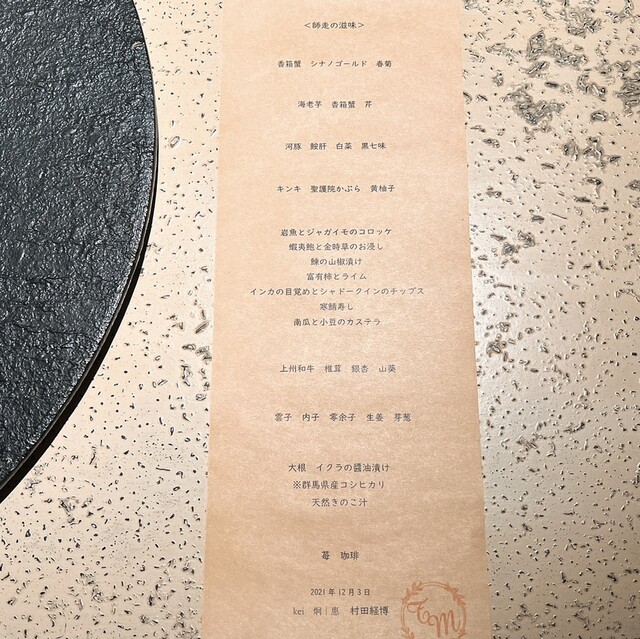 ＜師走の滋味＞
香箱蟹　シナノゴールド　春菊
海老芋　香箱蟹　芹
河豚　鮟肝　白菜　黒七味
キンキ　聖護院かぶら　黄柚子
岩魚とジャガイモのコロッケ
蝦夷鮑と金時草のお浸し
鰊の山椒漬け
富有柿とライム
インカの目覚めとシャドークインのチップス
寒鯖寿し
南瓜と小豆のカステラ
上州和牛　椎茸　銀杏　山葵
雲子　内子　零余子　生姜　芽葱
大根　イクラの醤油漬け
※群馬県産コシヒカリ
天然きのこ汁
苺　珈琲
2021年12月3日
kei　炯｜恵　村田経博